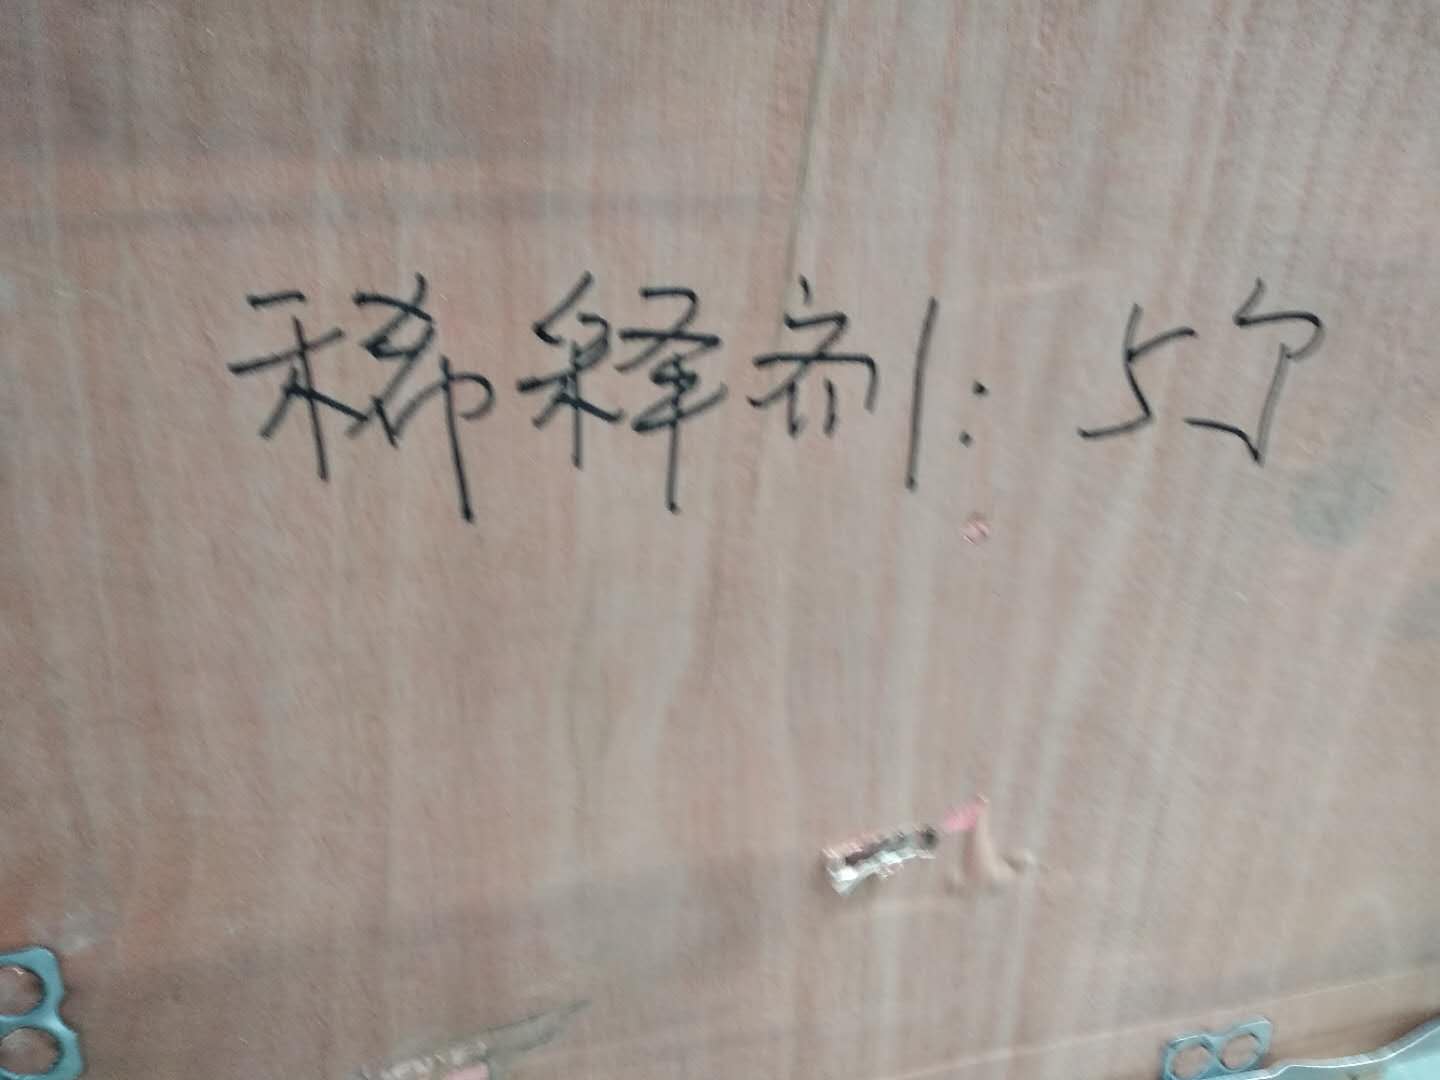 稀释剂: 5